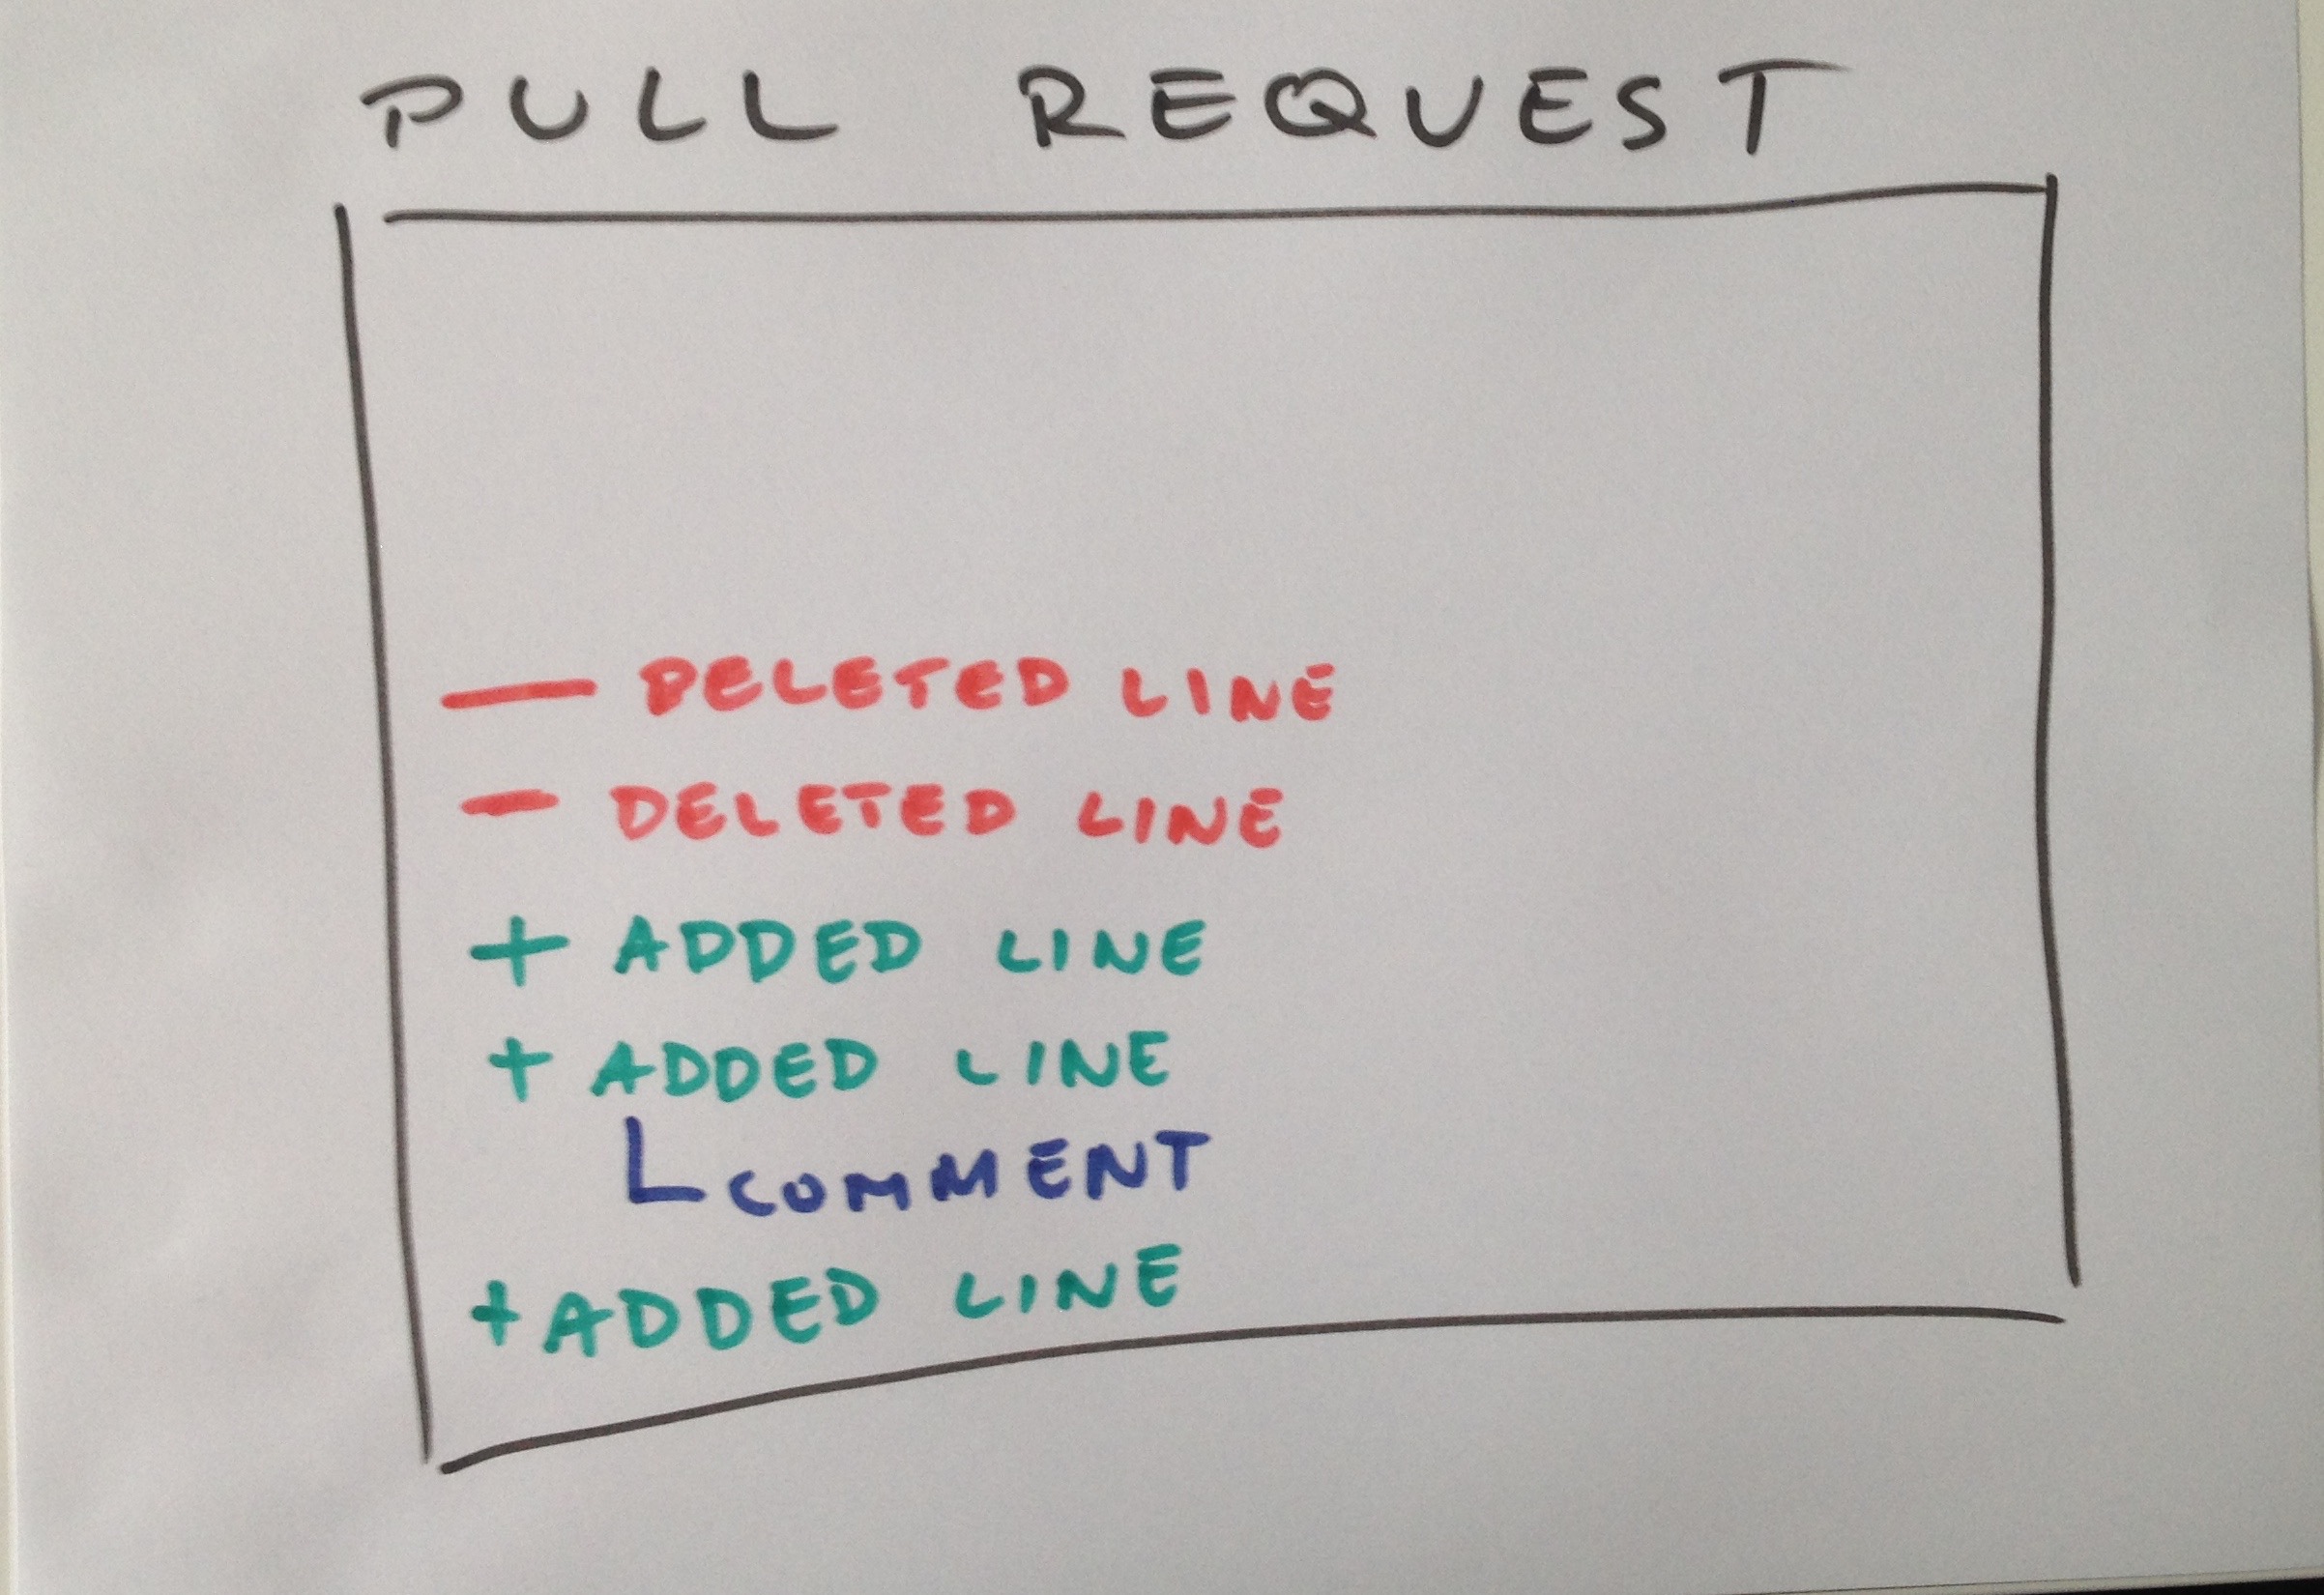 PULL REQUEST
— DELETED LINE
- DELETED LINE
+ ADDED LINE
+ ADDED LINE
L COMMENT
+ ADDED LINE